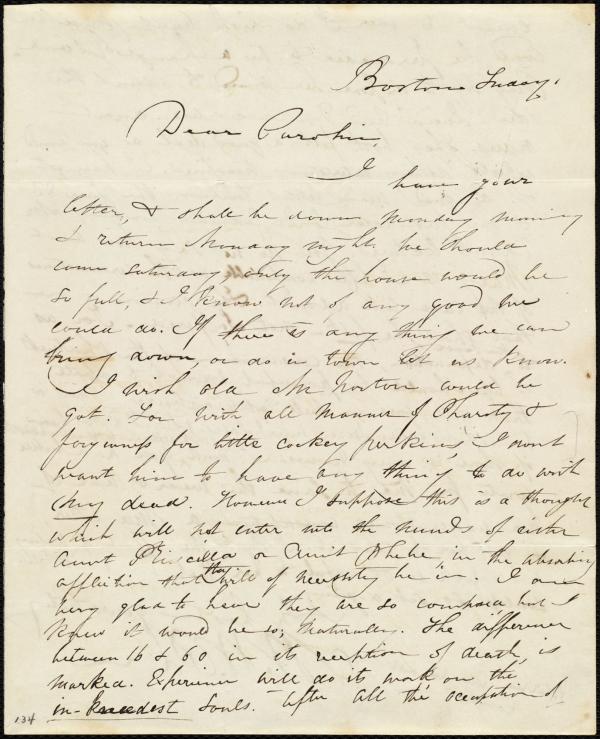 Boston Friday.
Dear Caroline,
I have your
letter, & shall be down Monday morning
& return Monday night. We should
come Saturday only the house would be
so full, & I know not of any good we
could do. If there is any thing we can
bring down, or do in town let us know.
I wish old Mr Norton would be
got. For with all manner of Charity &
forgiveness for little cockey Perkins, I dont
want him to have any thing to do with
my dead. However I suppose this is a thought
which will not enter into the minds of either
Aunt Priscilla or Aunt Phebe in the absorbing
affliction that they will of necessity be in. I am
very glad to hear they are so composed but I
knew it would be so; naturally. The difference
between 16 & 60 in its reception of death, is
marked. Experience will do its work on the
in-kneedest souls. After all the occupation of
134